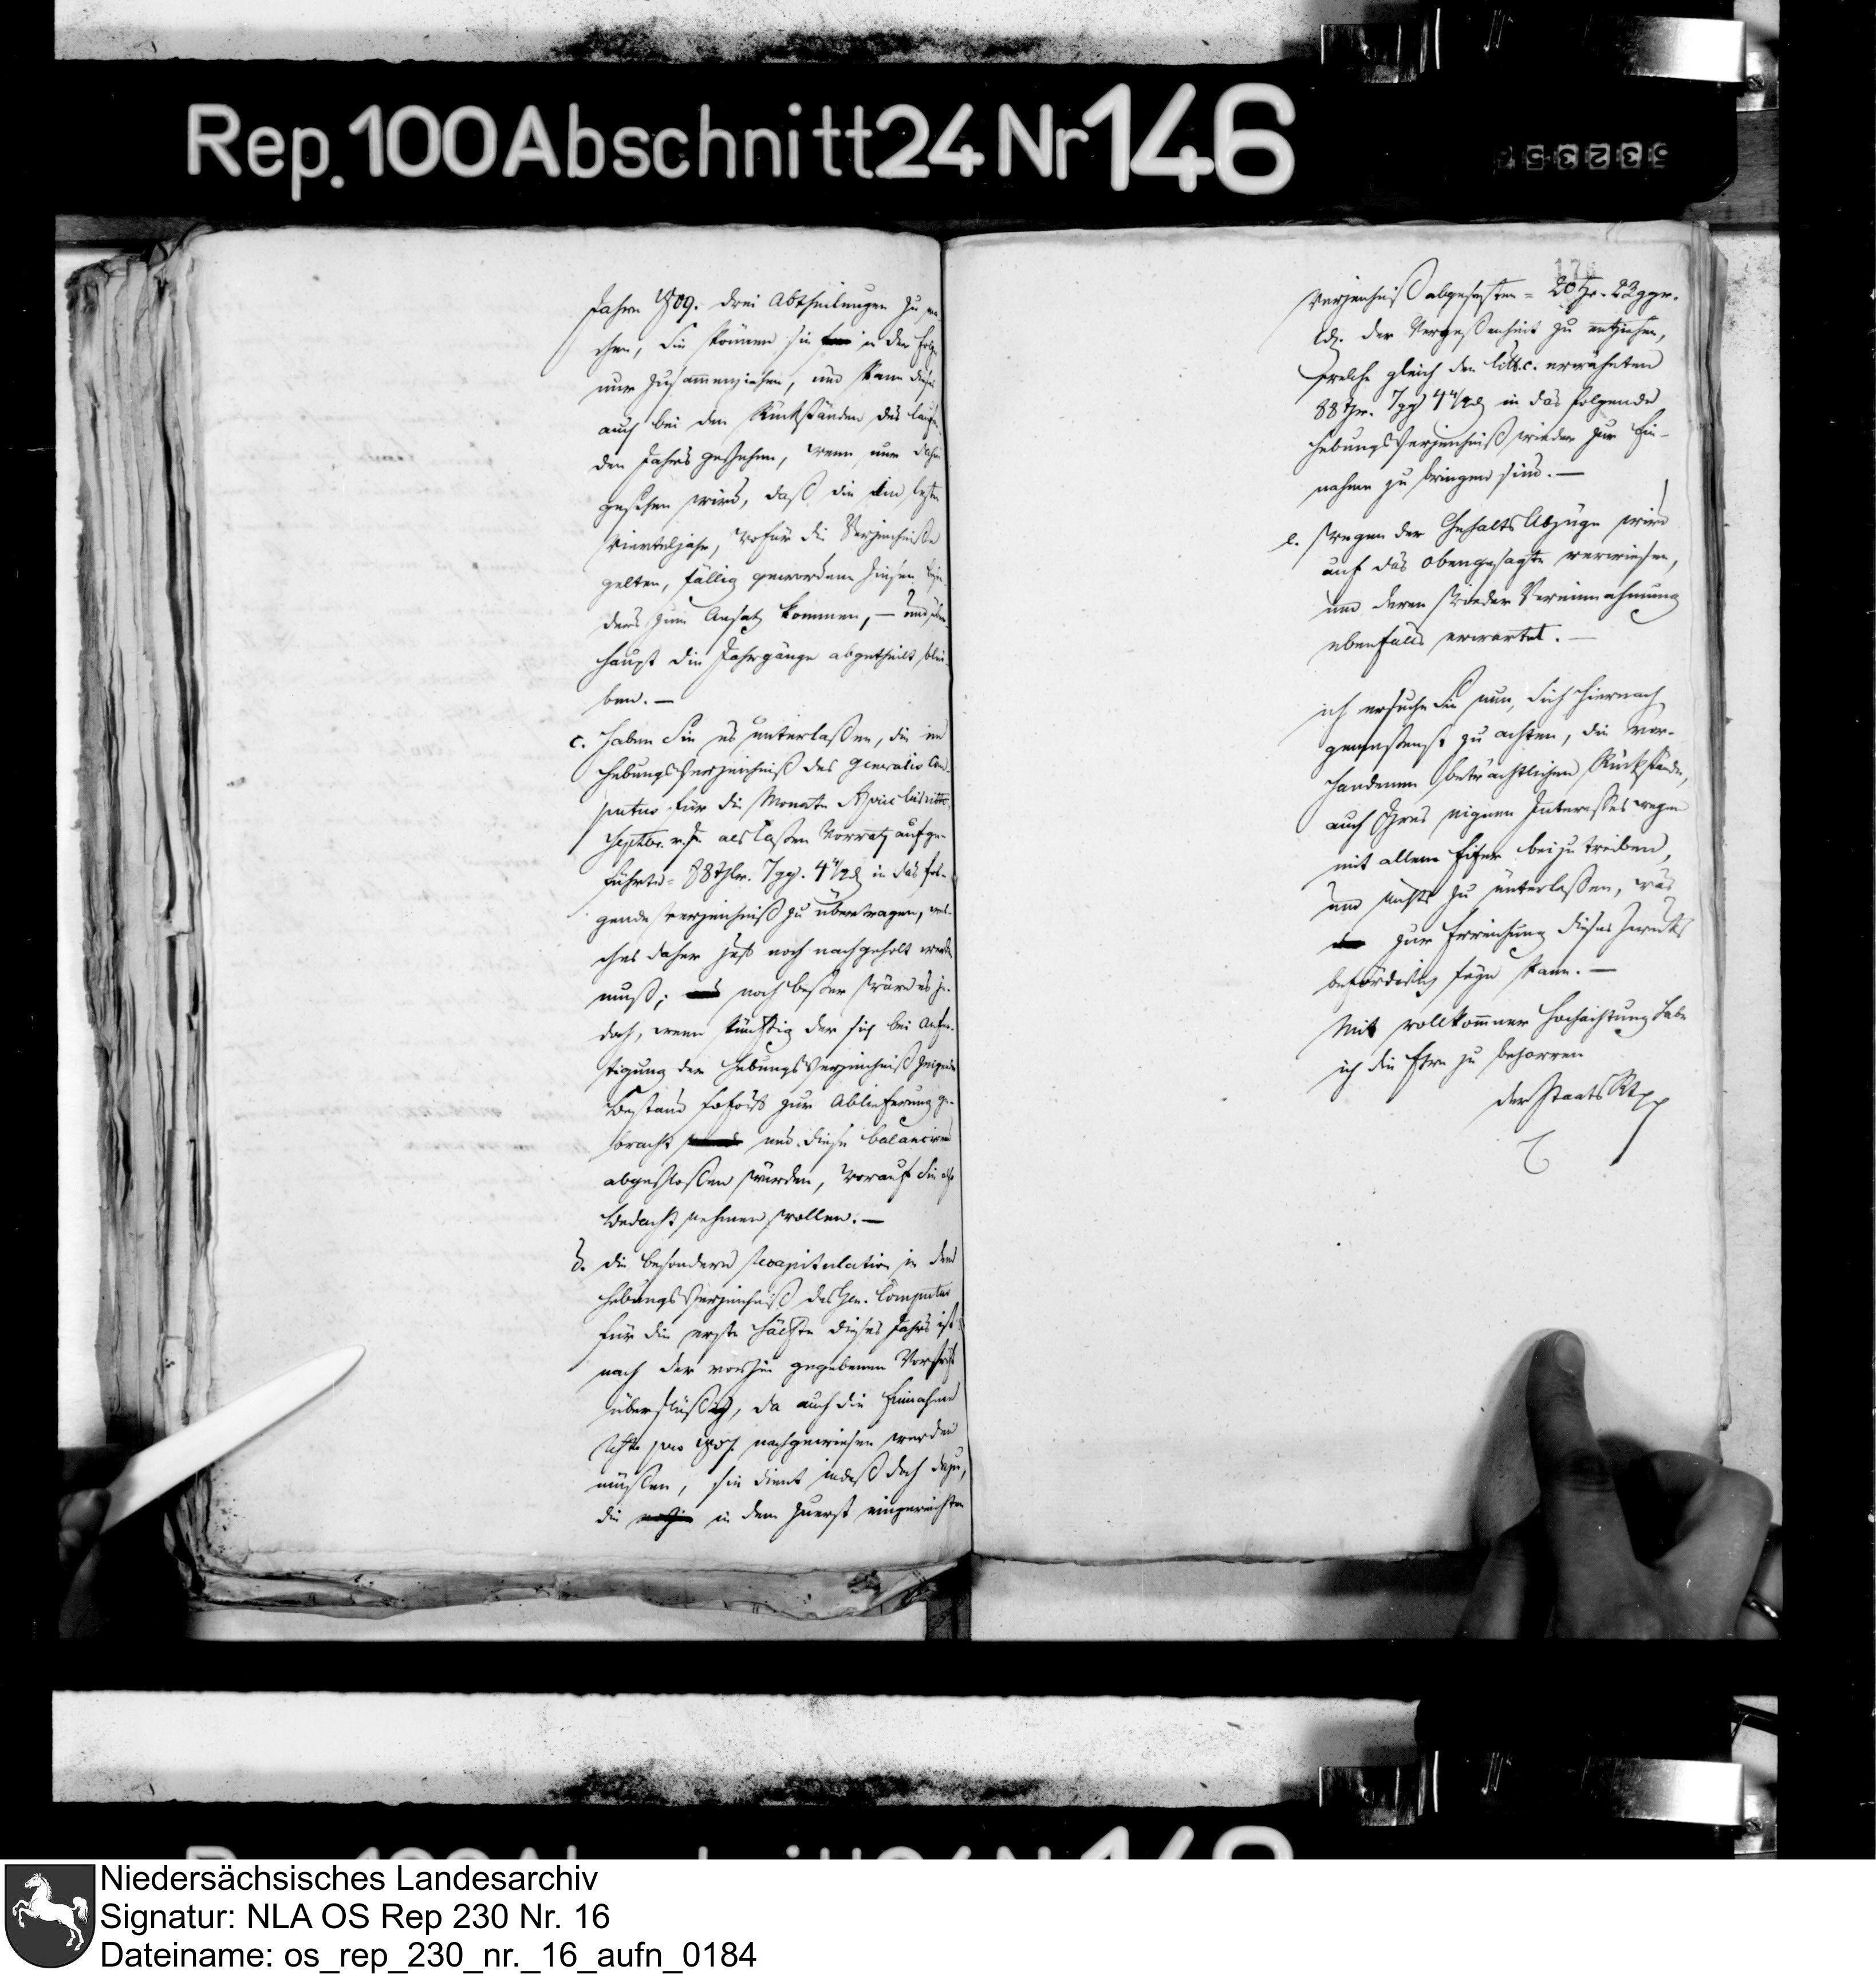 Rep. 100 Abschnitt 24 Nr 146
Jahre 1809. drei Abtheilungen zu ma-
chen, Sie können sie in der Folge
nur zusammenziehen, und kann dieses
auch bei den Rückständen des laufen-
den Jahrs geschehen, wenn nur dahin
gesehen wird, daß die im lezten
Vierteljahr, wofür die Verzeichniße
gelten, fällig gewordene Zinsen
ders zum Ansatz kommen, – und über-
haupt die Jahrgänge abgetheilt blei-
ben. –
c. Haben Sie es unterlaßen, die im
Hebungs Verzeichniß des Generalis Com-
putus für die Monate April bis ult.
Septbr. v. J. als Caßen Vorrath aufge-
führte = 88 thlr. 7 gg. 4 1/2 d in das fol-
gende Verzeichniß zu übertragen, wel-
ches daher jetzt noch nachgeholt werden
muß; noch beßer wäre es je-
doch, wenn künftig der sich bei Anfer-
tigung der Hebungs Verzeichniß zeigende
Bestand sofort zur Ablieferung ge-
bracht und diese balancirend
abgeschloßen würden, worauf Sie also
Bedacht nehmen wollen. –
d. die besondere Recapitulation in dem
Hebungs Verzeichniß des Gen. Computus
für die erste Hälfte dieses Jahrs ist
nach der vorhin gegebenen Vorschrift
überflüßig, da auch die Einnahme
Reste pro 1807 nachgewiesen werden
müßen, sie dient indeß doch dazu,
die in dem zuerst eingereichten
Verzeichniß abgesetzten = 20 thr. 23 ggr.
der Vergeßenheit zu entziehen,
welche gleich den litt. c. erwähnten
88 thr. 7 gg 4 1/2 d in das folgende
Hebungs Verzeichniß wieder zur Ein-
nahme zu bringen sind. –
e. Wegen der Gehalts Abzüge wird
auf das obengesagte verwiesen,
und deren wieder Vereinnahmung
ebenfalls erwartet. –
ich ersuche Sie nun, Sich hiernach
gemeßenst zu achten, die vor-
handenen beträchtlichen Rückstände,
auch Ihres eignen Interesses wegen
mit allem Eifer beizutreiben,
und nichts zu unterlaßen, was
zur Erreichung dieses Zwecks
beförderlich seyn kann. –
Mit vollkommner Hochachtung habe
ich die Ehre zu beharren
der Staats Rth
Niedersächsisches Landesarchiv
Signatur: NLA OS Rep 230 Nr. 16
Dateiname: os_rep_230_nr._16_aufn_0184